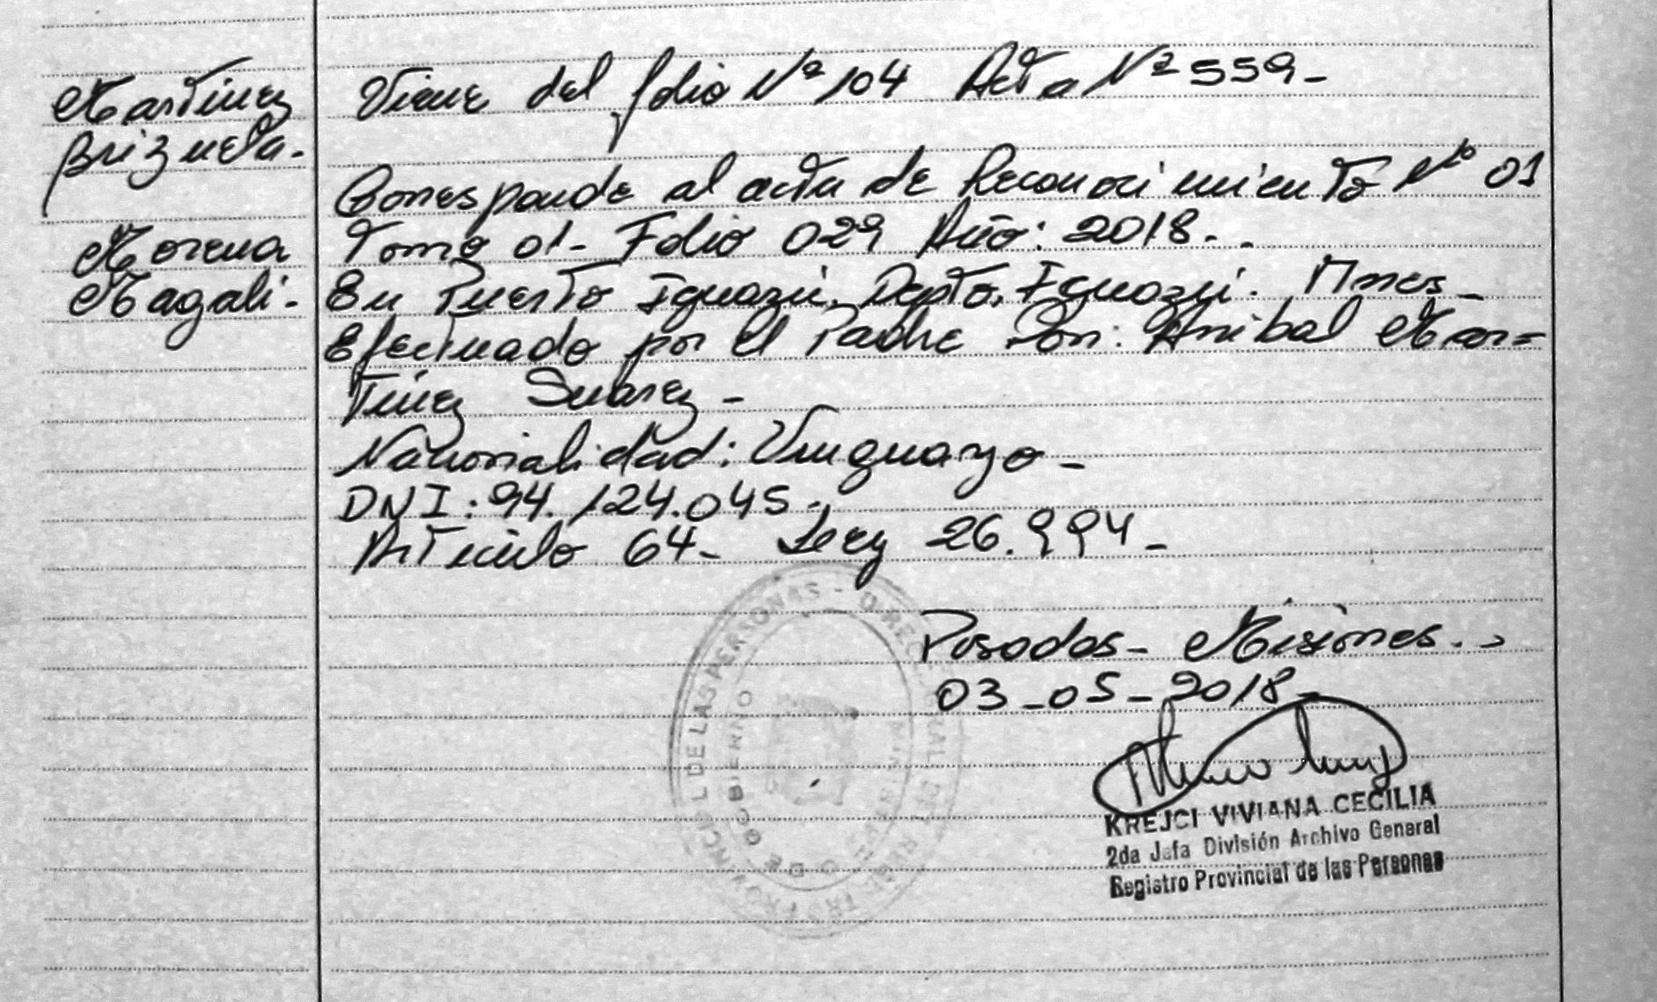 Martinez
Brizuela.
Morena
Magali.
Viene del folio Nº 104 Acta Nº 559-
Corresponde al acta de Reconocimiento Nº 01
Tomo 01- Folio 029 Año: 2018-.
En Puerto Iguazú. Depto. Iguazú. Mnes-
Efectuado por el Padre Don: Anibal Mar=
tínez Suarez-
Nacionalidad: Uruguayo-
DNI: 94.124.045.
Articulo 64- Ley 26.994-
Posadas- Misiones.-
03-05-2018-
KREJCI VIVIANA CECILIA
2da Jefa División Archivo General
Registro Provincial de las Personas
DE LAS PERSONAS -
GOBIERNO